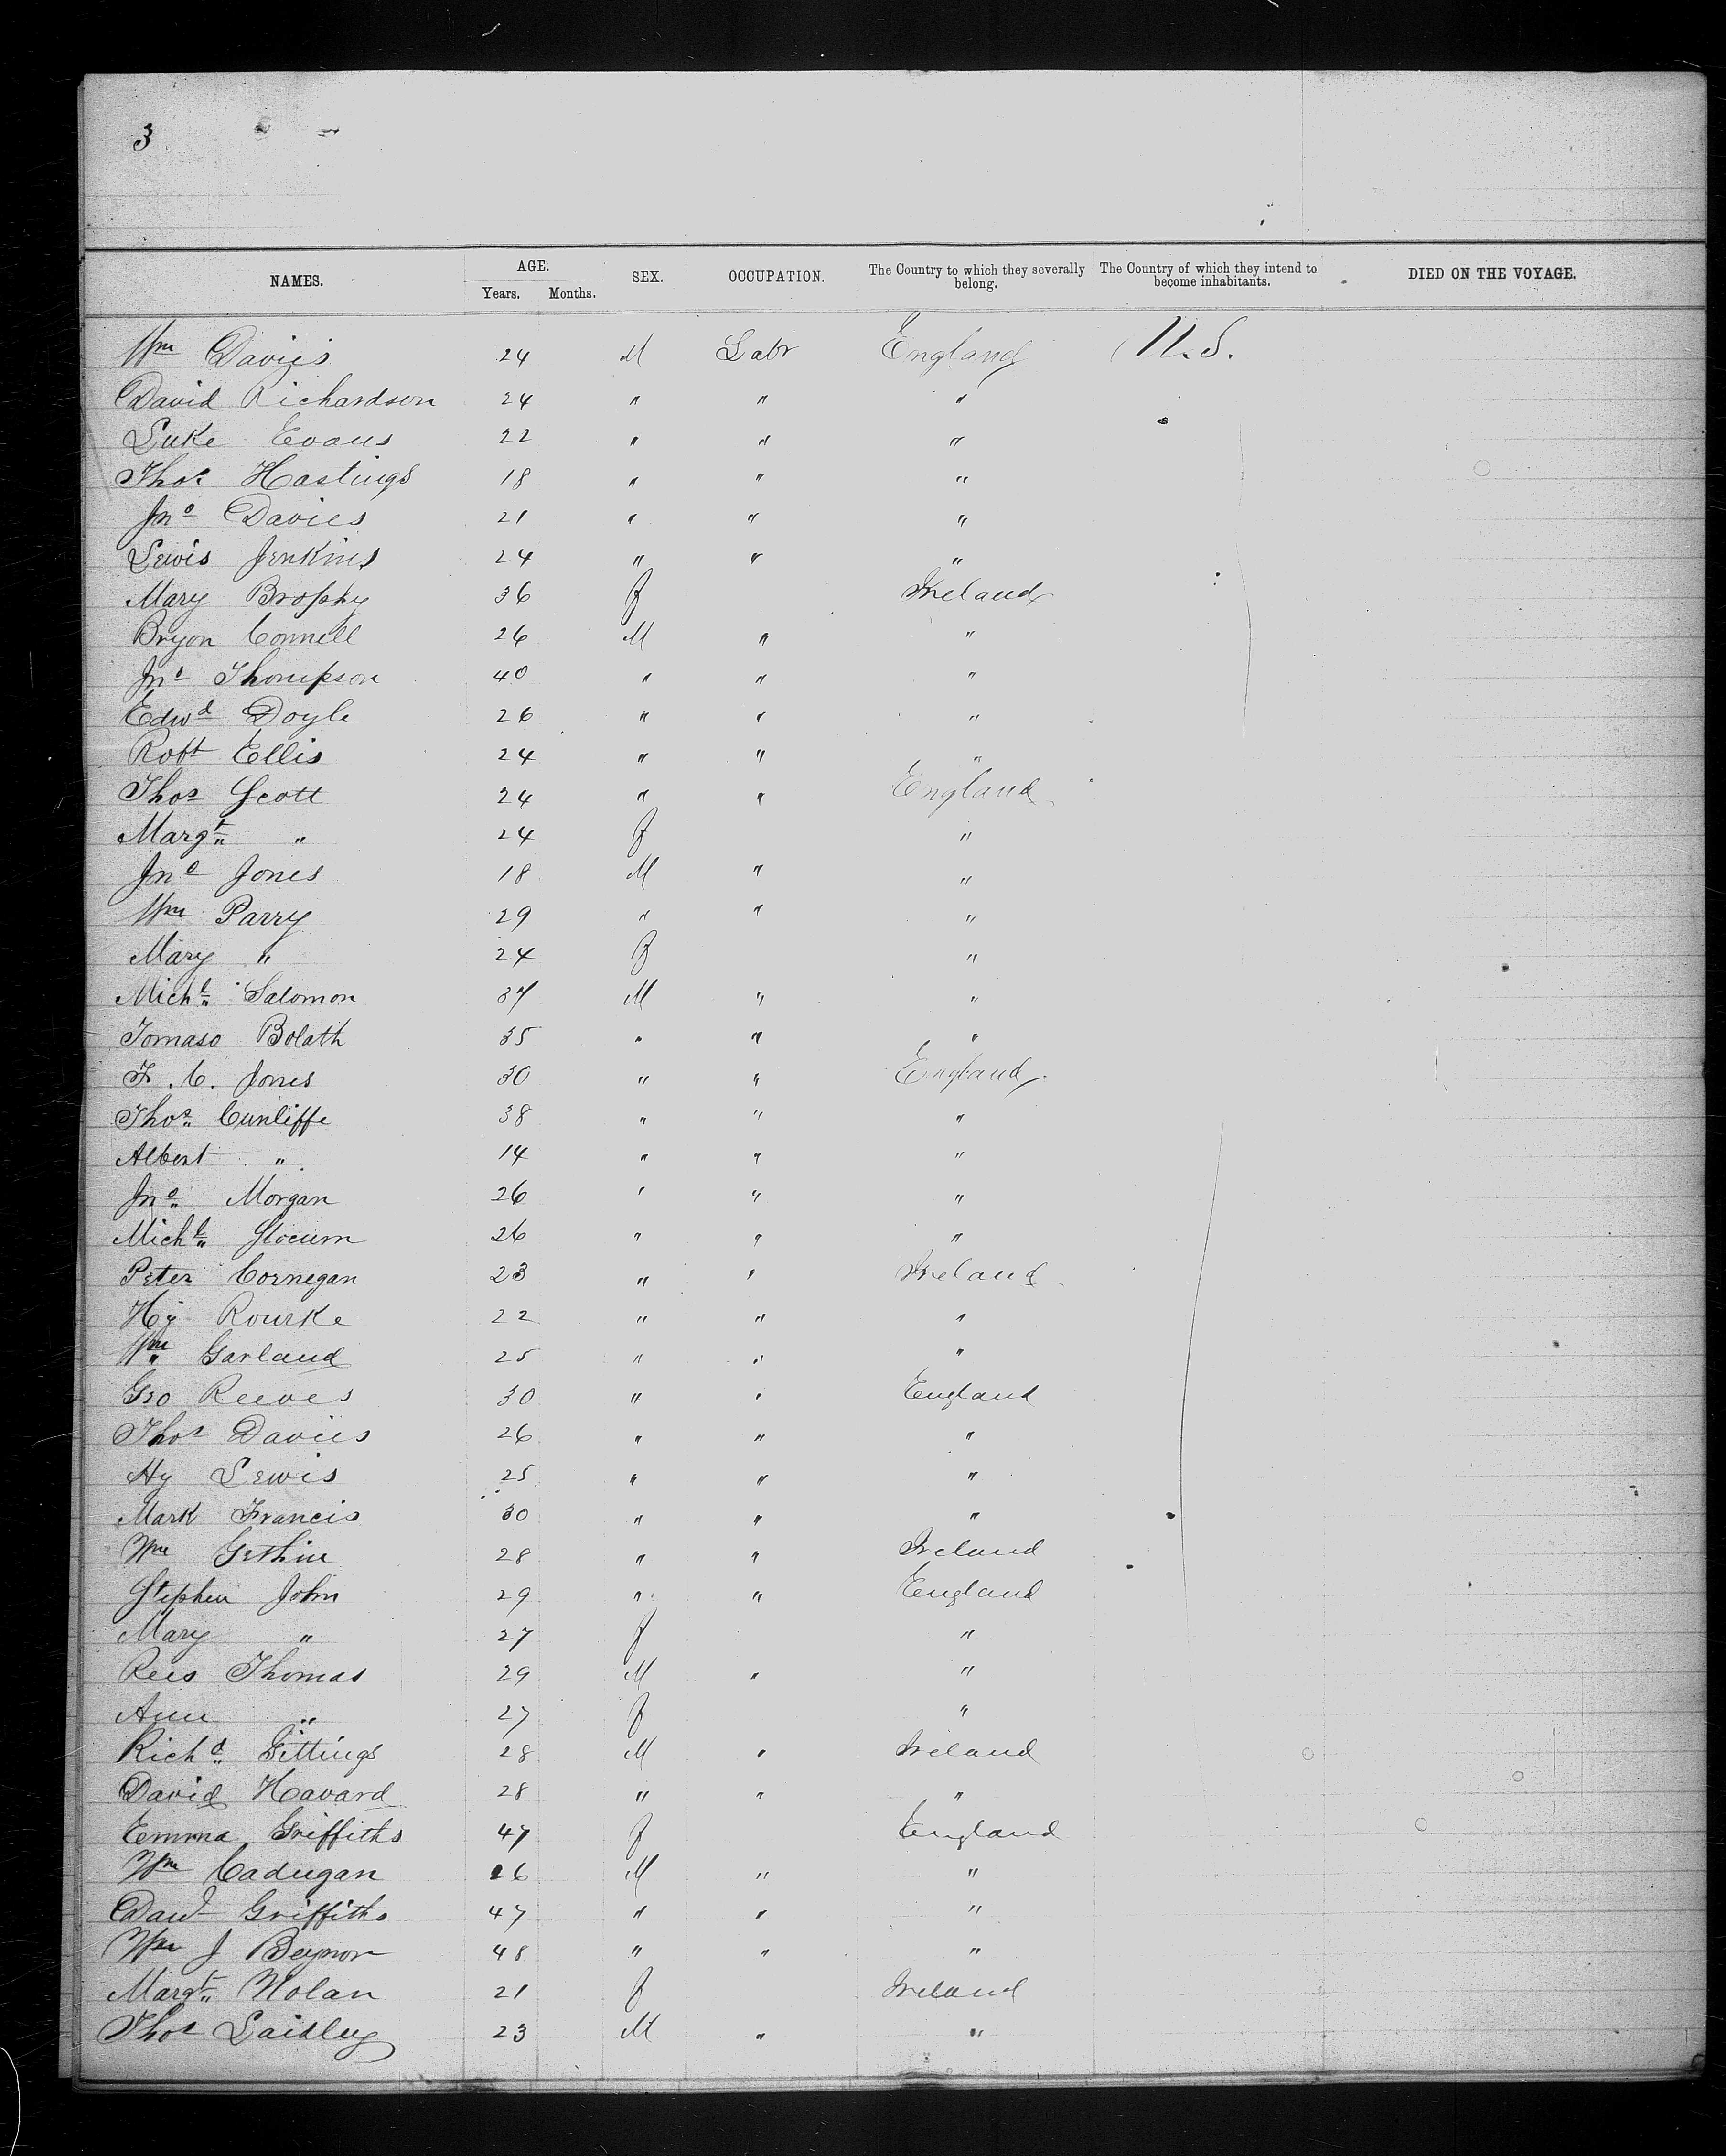 3
NAMES. AGE. Years. Months. SEX. OCCUPATION. The Country to which they severally belong. The Country of which they intend to become inhabitants. DIED ON THE VOYAGE.
Wm Davies 24 M Labr England U.S.
David Richardson 24 " " "
Luke Evans 22 " " "
Thos Hastings 18 " " "
Jno Davies 21 " " "
Lewis Jenkins 24 " " "
Mary Brophy 36 f Ireland
Bryon Connell 26 M " "
Jno Thompson 40 " " "
Edwd Doyle 26 " " "
Robt Ellis 24 " " "
Thos Scott 24 " " England
Margt " 24 f "
Jno Jones 18 M " "
Wm Parry 29 " " "
Mary " 24 f "
Michl Salomon 37 M " "
Tomaso Bolath 35 " " "
F. C. Jones 30 " " England
Thos Cunliffe 38 " " "
Albert " 14 " " "
Jno Morgan 26 " " "
Michl Slocum 26 " " "
Peter Cornegan 23 " " Ireland
Hy Rourke 22 " " "
Wm Garland 25 " " "
Geo Reeves 30 " " England
Thos Davies 26 " " "
Hy Lewis 25 " " "
Mark Francis 30 " " "
Wm Gethin 28 " " Ireland
Stephen John 29 " " England
Mary " 27 f "
Rees Thomas 29 M " "
Ann " 27 f "
Richd Gittings 28 M " Ireland
David Havard 28 " " "
Emma Griffiths 47 f England
Wm Cadugan 26 M " "
Davd Griffiths 47 " " "
Wm J Beynon 48 " " "
Margt Nolan 21 f Ireland
Thos Laidley 23 M " "